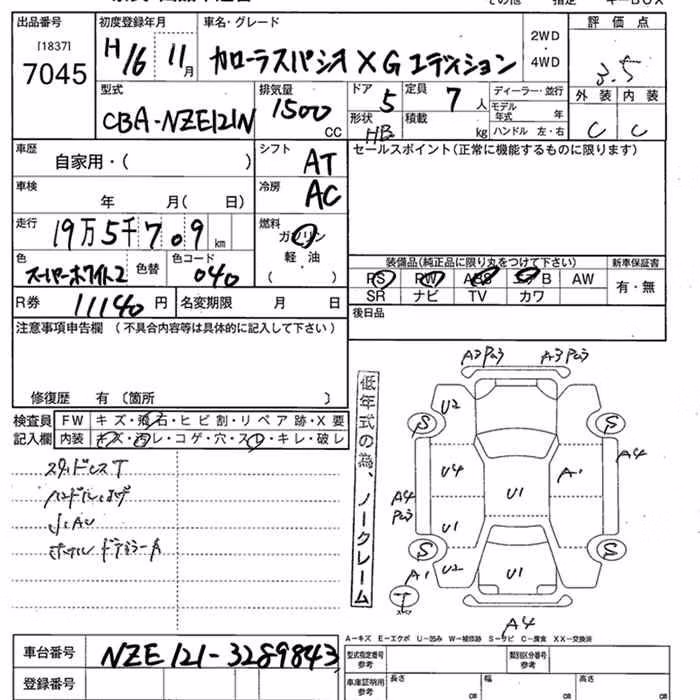 その他 指定 キーBOX
出品番号 初度登録年月 車名・グレード 評価点
[1837]
7045
H16 11月 カローラスパシオ XGエディション
2WD・4WD
3.5
型式 排気量 ドア 定員 ディーラー・並行 外装 内装
CBA-NZE121N 1500cc 5 7人 モデル年式 年 C C
形状 積載
HB kg ハンドル 左・右
車歴 シフト セールスポイント(正常に機能するものに限ります)
自家用・( ) AT
車検 冷房
年 月( 日) AC
走行 燃料
19万5千709km ガソリン
軽・油
( )
色 色コード
スーパーホワイト2 色替 040
装備品(純正品に限り丸をつけて下さい) 新車保証書
PS PW ABS エアB AW 有・無
SR ナビ TV カワ
R券 11140円 名変期限 月 日 後日品
注意事項申告欄 (不具合内容等は具体的に記入して下さい)
修復歴 有 〔箇所 〕
検査員 FW キズ・飛石・ヒビ割・リペア跡・X要
記入欄 内装 キズ・汚レ・コゲ・穴・スレ・キレ・破レ
スタッドレスT
ハンドルハゲ
低年式の為、ノークレーム
A2 Pa3 A3 Pa3
U2
S S
U4 A1 A4
A4 Pa3 U1
U1
S S
A1 U2 U1
T
A4
A-キズ E-エクボ U-凹み W-補修跡 S-サビ C-腐食 XX-交換済
車台番号 NZE121-3289843
型式指定番号 参考 類別区分番号 参考
登録番号
車庫証明用 参考 長さ cm 幅 cm 高さ cm